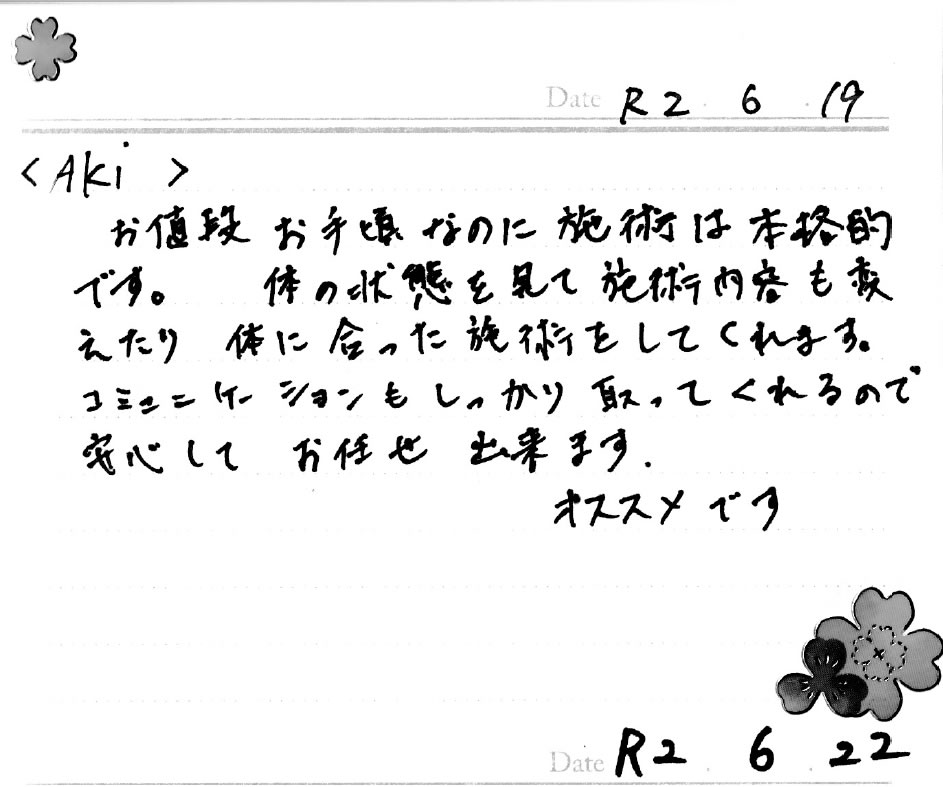 Date R2 . 6 . 19
<Aki>
お値段 お手頃なのに 施術は本格的
です。 体の状態を見て施術内容も変
えたり 体に合った施術をしてくれます。
コミュニケーションもしっかり取ってくれるので
安心して お任せ 出来ます.
オススメです
Date R2 . 6 . 22